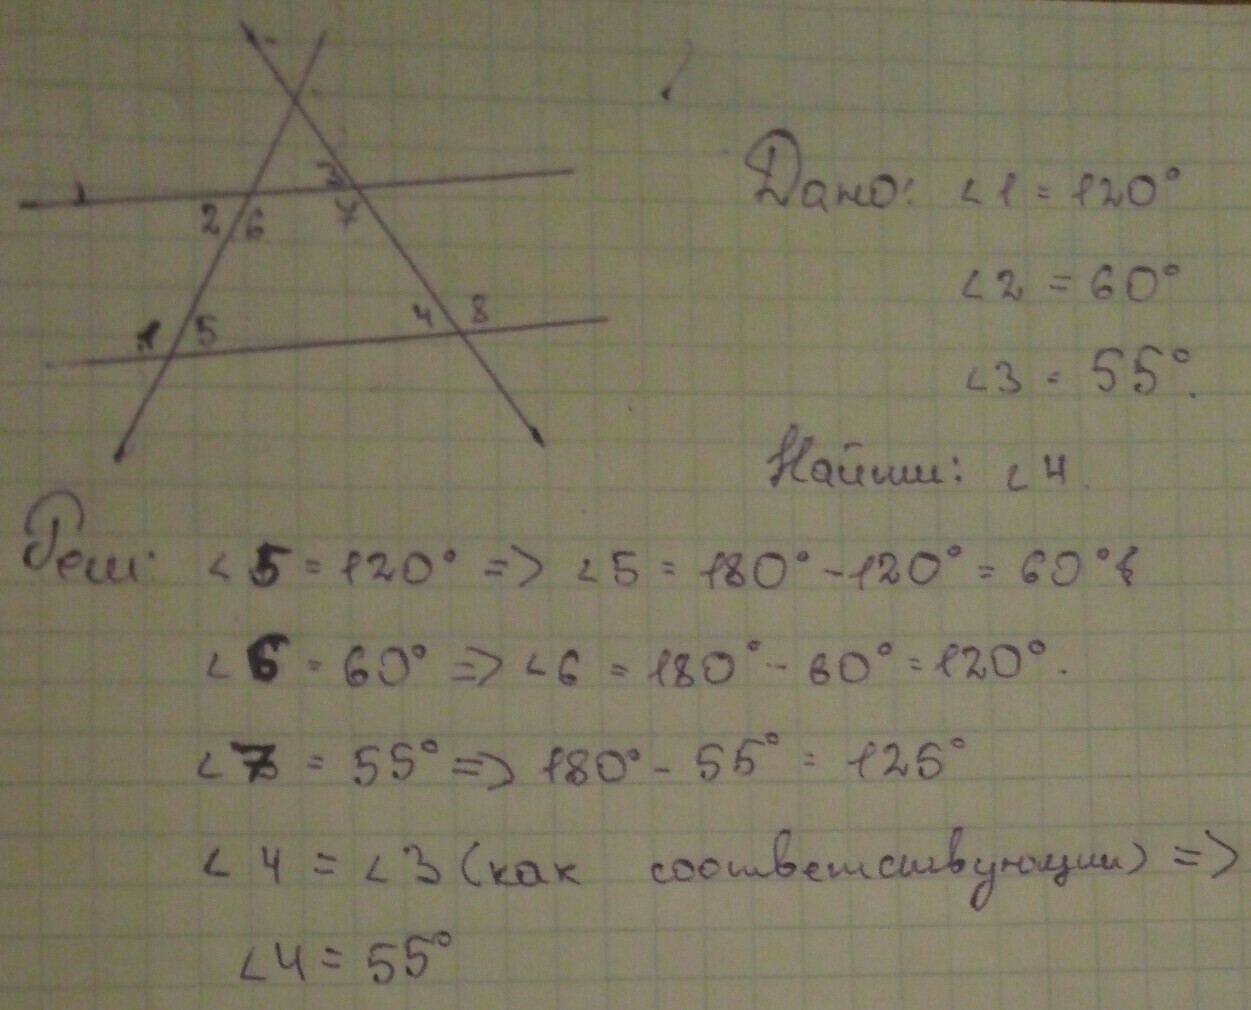 3
2 6 7
1 5 4 8
Дано: ∠1 = 120°
∠2 = 60°
∠3 = 55°.
Найти: ∠4.
Реш: ∠5 = 120° => ∠5 = 180° - 120° = 60°
∠6 = 60° => ∠6 = 180° - 60° = 120°.
∠7 = 55° => 180° - 55° = 125°
∠4 = ∠3 (как соответствующии) =>
∠4 = 55°